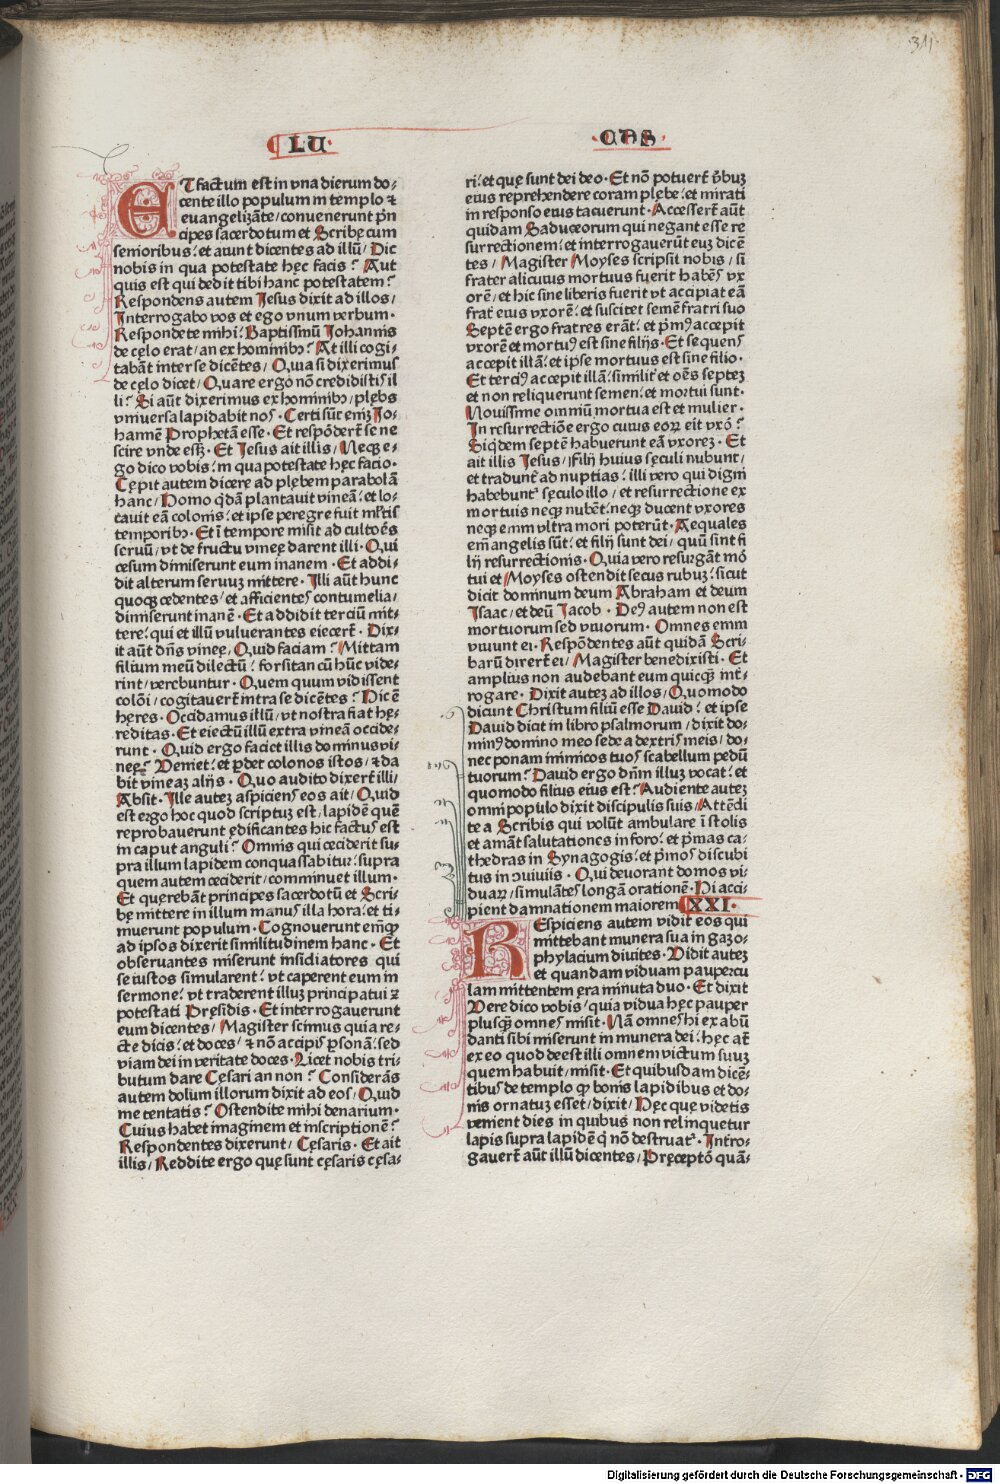 311
LU
CAS
ET factum est in vna dierum do⸗
cente illo populum in templo ⁊
euangelizāte / conuenerunt p̄n
cipes sacerdotum et Scribę cum
senioribus: et aiunt dicentes ad illū / Dic
nobis in qua potestate hęc facis? Aut
quis est qui dedit tibi hanc potestatem?
Respondens autem Jesus dixit ad illos /
Interrogabo vos et ego vnum verbum ·
Respondete mihi: Baptismū Johannis
de cęlo erat / an ex hominibꝫ? At illi cogi⸗
tabāt inter se dicētes / Quia si dixerimus
de cęlo dicet / Quare ergo nō credidistis il
li? Si aūt dixerimus ex hominibꝫ / plębs
vniuersa lapidabit nos · Certi sūt eniꝫ Jo⸗
hannē Prophetā esse · Et respōdert̄ se ne
scire vnde essꝫ · Et Jesus ait illis / Neqꝫ e⸗
go dico vobis: in qua potestate hęc facio ·
Cępit autem dicere ad plębem parabolā
hanc / Homo q̇dā plantauit vineā: et lo⸗
cauit eā colonis: et ipse peregre fuit ml̄tis
temporibꝫ · Et ī tempore misit ad cultoēs
seruū / vt de fructu vineę darent illi · Qui
cęsum dimiserunt eum inanem · Et addi⸗
dit alterum seruuꝫ mittere · Illi aūt hunc
quoqꝫ cedentes / et afficientes contumelia /
dimiserunt inanē · Et addidit terciū mit⸗
tere: qui et illū vulnerantes eiecert̄ · Dix⸗
it aūt dn̄s vineę / Quid faciam? Mittam
filium meū dilectū: forsitan cū hūc vide⸗
rint / verebuntur · Quem quum vidissent
colōi / cogitauert̄ intra se dicētes? Hic ē
hęres · Occidamus illū / vt nostra fiat hę⸗
reditas · Et eiectū illū extra vineā occide⸗
runt · Quid ergo faciet illis dominus vi⸗
neę? Veniet: et ꝑdet colonos istos / ⁊ da
bit vineaꝫ alijs · Quo audito dixert̄ illi /
Absit · Ille auteꝫ aspiciens eos ait / Quid
est ergo hoc quod scriptuꝫ est / lapidē quē
reprobauerunt ędificantes hic factus est
in caput anguli? Omnis qui ceciderit su⸗
pra illum lapidem conquassabitur: supra
quem autem ceciderit / comminuet illum ·
Et quęrebāt principes sacerdotū et Scri⸗
bę mittere in illum manus illa hora: et ti⸗
muerunt populum · Cognouerunt em̄ ꝙ
ad ipsos dixerit similitudinem hanc · Et
obseruantes miserunt insidiatores qui
se iustos simularent: vt caperent eum in
sermone: vt traderent illuꝫ principatui ⁊
potestati Pręsidis · Et interrogauerunt
eum dicentes / Magister scimus quia re⸗
cte dicis: et doces / ⁊ nō accipis ꝑsonā: sed
viam dei in veritate doces · Licet nobis tri⸗
butum dare Cęsari an non? Considerās
autem dolum illorum dixit ad eos / Quid
me tentatis? Ostendite mihi denarium ·
Cuius habet imaginem et inscriptionē?
Respondentes dixerunt / Cęsaris · Et ait
illis / Reddite ergo quę sunt cęsaris cęsa⸗
ri: et quę sunt dei deo · Et nō potuert̄ v̄buꝫ
eius reprehendere coram plębe: et mirati
in responso eius tacuerunt · Accessert̄ aūt
quidam Saduceorum qui negant esse re
surrectionem: et interrogauerūt euꝫ dicē
tes / Magister Moyses scripsit nobis / si
frater alicuius mortuus fuerit habēs vx
orē / et hic sine liberis fuerit vt accipiat eā
frat̄ eius vxorē: et suscitet semē fratri suo
Septē ergo fratres erāt: et p̄mꝰ accepit
vxorē et mortuꝰ est sine filijs · Et sequens
accepit illā: et ipse mortuus est sine filio ·
Et terciꝰ accepit illā: similit̄ et oēs septeꝫ
et non reliquerunt semen: et mortui sunt ·
Nouissime omniū mortua est et mulier ·
In resurrectiōe ergo cuius eoꝝ eīt vxō?
Siq̇dem septē habuerunt eā vxoreꝫ · Et
ait illis Jesus / Filij huius sęculi nubunt /
et tradunt̄ ad nuptias: illi vero qui digni
habebunt᷑ sęculo illo / et resurrectione ex
mortuis neqꝫ nubēt: neqꝫ ducent vxores
neqꝫ enim vltra mori poterūt · Aequales
em̄ angelis sūt: et filij sunt dei / quū sint fi
lij resurrectionis · Quia vero resurgāt mō
tui et Moyses ostendit secus rubuꝫ: sicut
dicit dominum deum Abraham et deum
Isaac / et deū Jacob · Deꝰ autem non est
mortuorum sed viuorum · Omnes enim
viuunt ei · Respōdentes aūt quidā Scri⸗
barū dixert̄ ei / Magister benedixisti · Et
amplius non audebant eum quicqꝫ int̄⸗
rogare · Dixit auteꝫ ad illos / Quomodo
dicunt Christum filiū esse Dauid: et ipse
Dauid dicit in libro psalmorum / dixit do⸗
minꝰ domino meo sede a dextris meis / do⸗
nec ponam inimicos tuos scabellum pedū
tuorum? Dauid ergo dn̄m illuꝫ vocat: et
quomodo filius eius est? Audiente auteꝫ
omni populo dixit discipulis suis / Attēdi
te a Scribis qui volūt ambulare ī stolis
et amāt salutationes in foro: et p̄mas ca⸗
thedras in Synagogis: et p̄mos discubi
tus in ↄuiuiis · Qui deuorant domos vi⸗
duaꝝ / simulātes longā orationē · Hi acci⸗
pient damnationem maiorem XXI ·
REspiciens autem vidit eos qui
mittebant munera sua in gazo⸗
phylacium diuites · Vidit auteꝫ
et quandam viduam paupercu
lam mittentem ęra minuta duo · Et dixit
Vere dico vobis / quia vidua hęc pauper
plusqꝫ omnes misit · Nā omnes hi ex abū
danti sibi miserunt in munera dei: hęc at̄
ex eo quod deest illi omnem victum suuꝫ
quem habuit / misit · Et quibusdam dicē⸗
tibus de templo ꝙ bonis lapidibus et do⸗
nis ornatuꝫ esset / dixit / Hęc quę videtis
venient dies in quibus non relinquetur
lapis supra lapidē q̇ nō destruat᷑ · Intro⸗
gauert̄ aūt illū dicentes / Pręceptō quā⸗
Digitalisierung gefördert durch die Deutsche Forschungsgemeinschaft - DFG